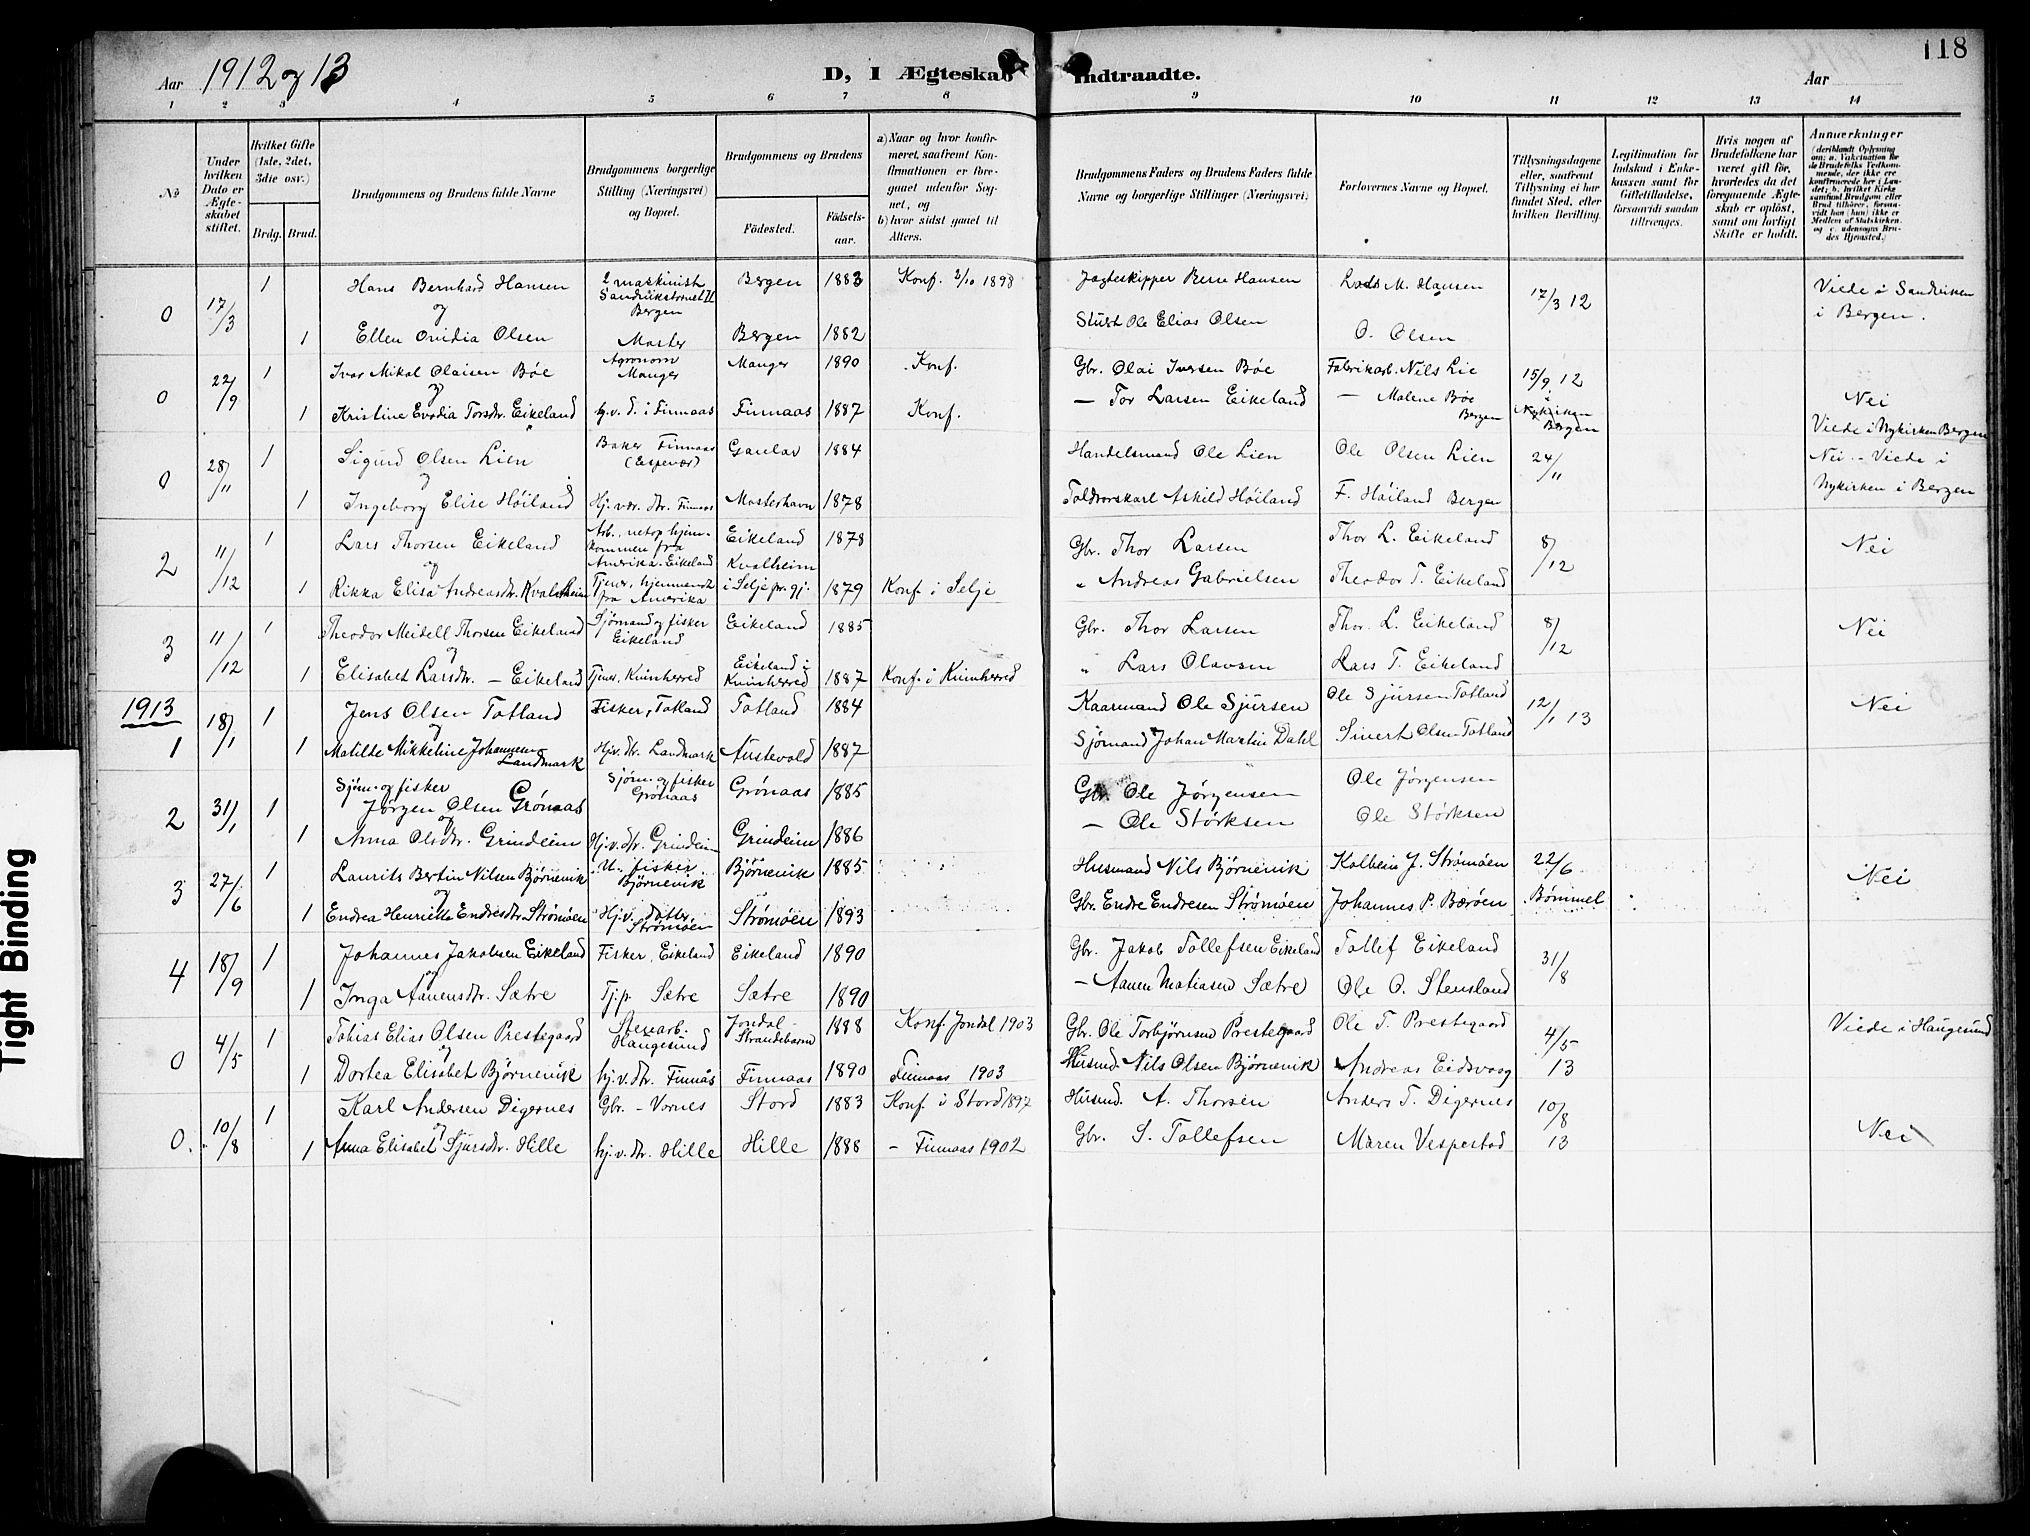 118
Aar 1912 og 13 D, I Ægteskab Indtraadte. Aar
1 2 3 4 5 6 7 8 9 10 11 12 13 14
No
Under hvilken Dato er Ægteskabet stiftet.
Hvilket Gifte (1ste, 2det, 3die osv.)
Brdg. Brud.
Brudgommens og Brudens fulde Navne
Brudgommens borgerlige Stilling (Næringsvei) og Bopæl.
Brudgommens og Brudens
Födested. Födselsaar.
a) Naar og hvor konfirmeret, saafremt Konfirmationen er foregaaet udenfor Sognet, og
b) hvor sidst gaaet til Alters.
Brudgommens Faders og Brudens Faders fulde Navne og borgerlige Stillinger (Næringsvei)
Forlovernes Navne og Bopæl.
Tillysningsdagene eller, saafremt Tillysning ei har fundet Sted, efter hvilken Bevilling.
Legitimation for Indskud i Enkekassen samt for Giftetilladelse, forsaavidt saadan tiltrænges.
Hvis nogen af Brudefolkene har været gift før, hvorledes da det foregaaende Ægteskab er oplöst, samt om lovligt Skifte er holdt.
Anmerkninger
(deriblandt Oplysning om: a. Vakcination for de Brudefolks Vedkommende, der ikke ere konfirmerede her i Landet; b. hvilket Kirkesamfund Brudgom eller Brud tilhörer, forsaavidt han (hun) ikke er Medlem af Statskirken, og c. udensogns Brudes Hjemsted.)
0 17/3 1 Hans Bernhard Hansen 2 maskinist Bergen 1883 Konf. 2/10 1898 Jagteskipper Bern Hansen M. Hansen 17/3 12 Viede i Sandviken i Bergen.
og Bergen
1 Ellen Ovidia Olsen Moster Bergen 1882 Ole Elias Olsen O. Olsen
0 22/9 1 Ivar Mikal Olaisen Bøe Agronom Manger Manger 1890 Konf. Gbr. Olai Iversen Bøe Fabrikarb. Nils Lie 15/9 12 Nei
og
1 Kristine Evodia Torsdr. Eikeland hj.v.d. i Finnaas Finnaas 1887 Konf. — Tor Larsen Eikeland — Malene Bøe Bergen i Nykirken Bergen Viede i Nykirken Bergen
0 28/11 1 Sigurd Olsen Lien Baker Finnaas (Espevær) Gaular 1884 Handelsmand Ole Lien Ole Olsen Lien 24/11 Nei - Viede i Nykirken i Bergen
og
1 Ingeborg Elise Høiland Hj.vær. dtr. Finnaas Mosterhavn 1878 Toldvorskarl Askild Høiland F. Høiland Bergen
2 11/12 1 Lars Thorsen Eikeland Arb., netop hjemkommen fra Amerika. Eikeland Eikeland 1878 Gbr. Thor Larsen Thor L. Eikeland 8/12 Nei
og
1 Rikka Elisa Andreasdtr. Kvalheim Tjener, hjemvendt fra Amerika Kvalheim i Selje pr.gj. 1879 Konf. i Selje " Andreas Gabrielsen Theodor T. Eikeland
3 11/12 1 Theodor Meidell Thorsen Eikeland Sjømand og fisker Eikeland Eikeland 1885 Gbr. Thor Larsen Thor L. Eikeland 8/12 Nei
og
1 Elisabet Larsdtr. — Eikeland Tjener, Kvinherred Eikeland i Kvinherred 1887 Konf. i Kvinherred " Lars Olavsen Lars T. Eikeland
1913
1 18/1 1 Jens Olsen Totland Fisker, Totland Totland 1884 Kaarmand Ole Sjursen Ole Sjursen Totland 12/1 13 Nei
og
1 Matilde Mikkeline Johannesen Landmark Hjv. dtr. Landmark Austevold 1887 Sjømand Johan Martin Dahl Sivert Olsen Totland
2 31/1 1 Sjøm. og fisker Jørgen Olsen Grønaas Sjøm. og fisker Grønaas Grønaas 1885 Gbr. Ole Jørgensen Ole Jørgensen
og
1 Anna Olsdtr. Grindeim Hj.v. dtr. Grindeim Grindeim 1886 — Ole Størksen Ole Størksen
3 27/6 1 Laurits Bertin Nilsen Bjørnevik U. fisker Bjørnevik Bjørnevik 1885 Husmand Nils Bjørnevik Kolbein J. Strømøen 22/6 Nei
og
1 Endrea Henrikke Endresdtr. Strømøen Hj.v. datter Strømøen Strømøen 1893 Gbr. Endre Endresen Strømøen Johannes P. Bærøen Bømmel
4 18/9 1 Johannes Jakobsen Eikeland Fisker, Eikeland Eikeland 1890 Gbr. Jakob Tollefsen Eikeland Tollef Eikeland 31/8
og
1 Inga Aanensdtr. Sætre Tj.p. Sætre Sætre 1890 — Aanen Matiasen Sætre Ole O. Stensland
0 4/5 1 Tobias Elias Olsen Prestegaard Stenarb. Haugesund Jondal Strandebarm 1888 Konf. Jondal 1903 Gbr. Ole Torbjørnsen Prestegaard Ole T. Prestegaard 4/5 13 Viede i Haugesund
og
1 Dortea Elisabet Bjørnevik hj.v. dtr. Finnås Finnaas 1890 Finnaas 1903 Husmd. Nils Olsen Bjørnevik Andreas Eidsvaag
0. 10/8 1 Karl Andersen Digernes Gbr. - Vornes Stord 1883 Konf. i Stord 1897 Husmd. A. Thorsen Anders T. Digernes 10/8 13 Nei
og
1 Anna Elisabet Sjursdtr. Hille hj.v. dtr. Hille Hille 1888 — Finnaas 1902 Gbr. S. Tollefsen Maren Vespestad
Tight Binding